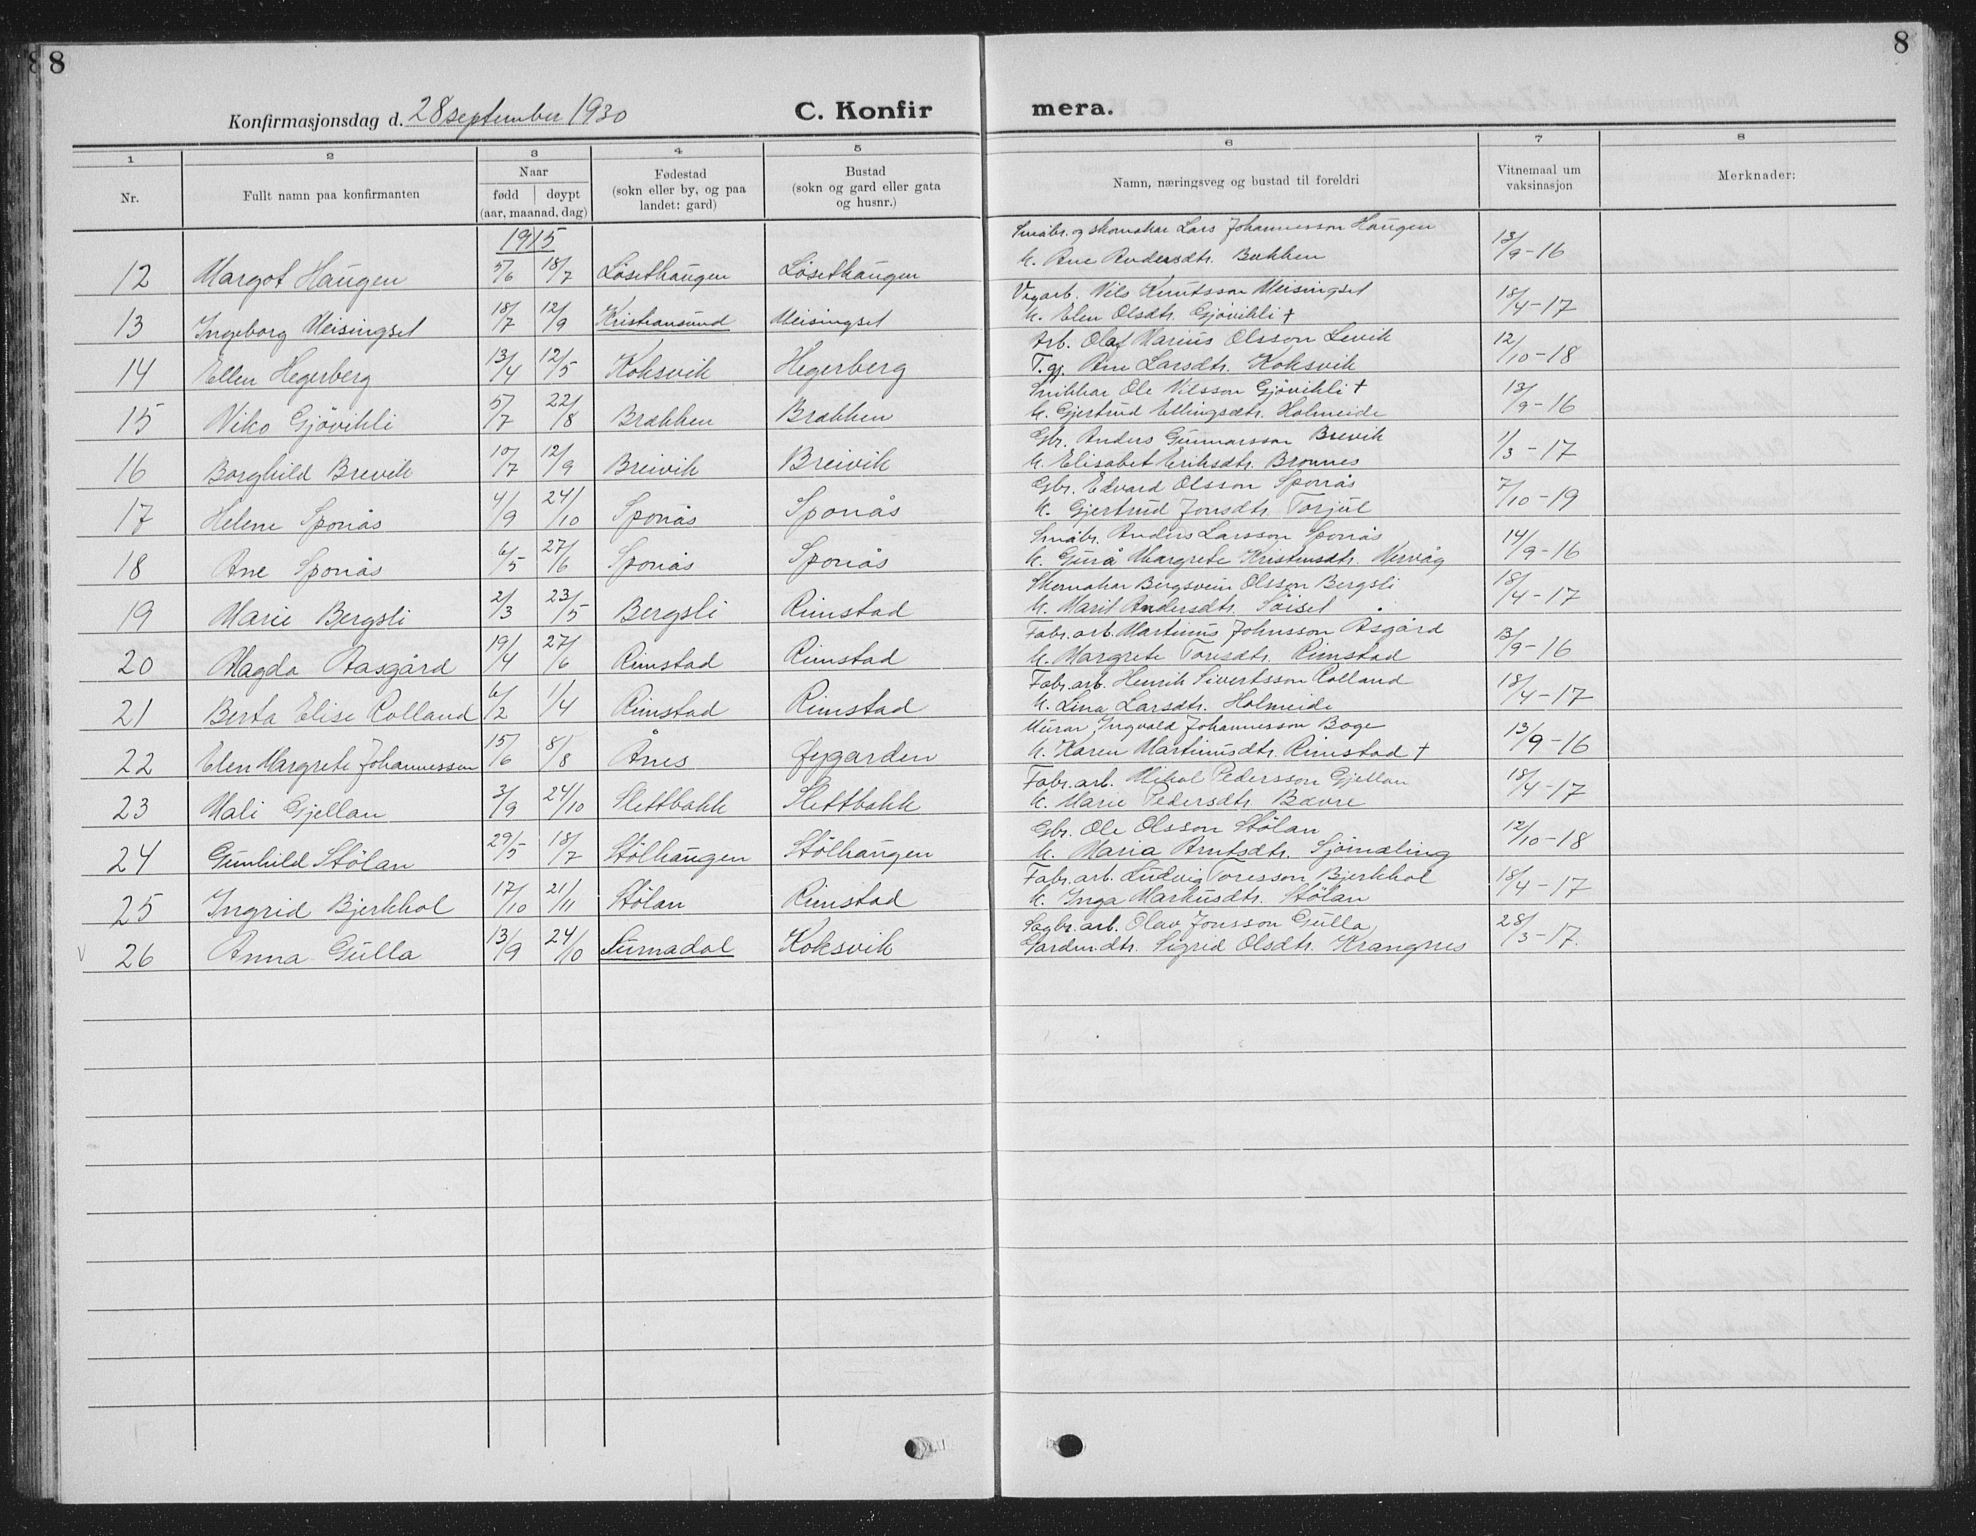 8 8
Konfirmasjonsdag d. 28 september 1930 C. Konfirmera.
1 2 3 4 5 6 7 8
Nr. Fullt namn paa konfirmanten Naar fødd døypt (aar, maanad, dag) Fødestad (sokn eller by, og paa landet: gard) Bustad (sokn og gard eller gata og husnr.) Namn, næringsveg og bustad til foreldri Vitnemaal um vaksinasjon Merknader:
1915
Småbr. og skomakar Lars Johannesson Haugen
12 Margot Haugen 5/6 18/7 Løsethaugen Løsethaugen K. Ane Andersdtr. Bakken 13/9-16
Vegarb. Nils Knutsson Meisingset
13 Ingeborg Meisingset 18/7 12/9 Kristiansund Meisingset K. Elen Olsdtr. Gjøvikli + 18/4-17
Arb. Olaf Marius Olsson Levik
14 Ellen Hegerberg 13/4 12/5 Koksvik Hegerberg T. gj. Ane Larsdtr. Koksvik 12/10-18
Snikkar Ole Nilsson Gjøvikli +
15 Viko Gjøvikli 5/7 22/8 Brakken Brakken K. Gjertrud Ellingsdtr. Holmeide 13/9-16
Gbr. Anders Gunnarsson Brevik
16 Borghild Brevik 10/7 12/9 Breivik Breivik K. Elisabet Eriksdtr. Bronnes 1/3-17
Gbr. Edvard Olsson Sponås
17 Helene Sponås 4/9 24/10 Sponås Sponås K. Gjertrud Jonsdtr. Torjul 7/10-19
Småbr. Anders Larsson Sponås
18 Ane Sponås 6/5 27/6 Sponås Sponås K. Gurå Margrete Kristensdtr. Nervåg 14/9-16
Skomakar Bergsvein Olsson Bergsli
19 Marie Bergsli 2/3 23/5 Bergsli Rimstad K. Marit Andersdtr. Søiset 18/4-17
Fabr.arb. Martinus Johnsson Asgård
20 Magda Aasgård 19/4 27/6 Rimstad Rimstad K. Margrete Toresdtr. Rimstad 13/9-16
Fabr.arb. Henrik Sivertsson Rolland
21 Berta Elise Rolland 6/2 1/4 Rimstad Rimstad K. Lina Larsdtr. Holmeide 18/4-17
Murar Ingvald Johannesson Boge
22 Elen Margrete Johannessen 15/6 8/8 Ånes Øygarden K. Karen Martinusdtr. Rimstad + 13/9-16
Fabr.arb. Mikal Pedersson Gjellan
23 Mali Gjellan 3/9 24/10 Slettbakk Slettbakk K. Marie Pedersdtr. Bævre 18/4-17
Gbr. Ole Olsson Stölan
24 Gunhild Stölan 29/5 18/7 Stölhaugen Stölhaugen K. Maria Arntsdtr. Sjömæling 12/10-18
Fabr.arb. Ludvig Toresson Bjerkhol
25 Ingrid Bjerkhol 17/10 21/11 Stölan Rimstad K. Inga Markusdtr. Stölan 18/4-17
Sagbr.arb. Olav Jonsson Gulla
V 26 Anna Gulla 13/9 24/10 Surnadal Koksvik Gardm.dtr. Sigrid Olsdtr. Krangnes 28/3-17.